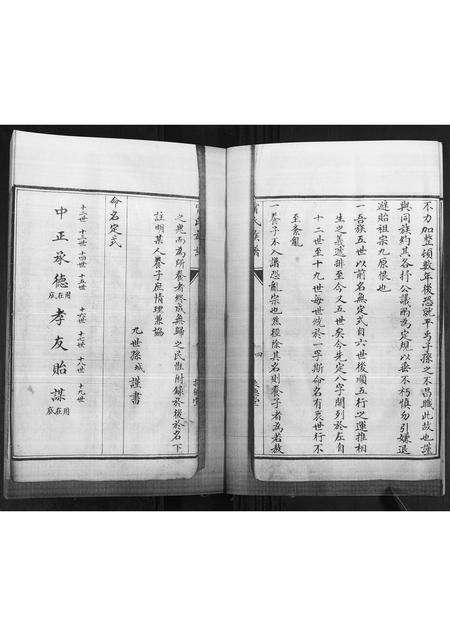 不力加整頓數年後恐就平焉子孫之不昌職此故也謹
與同族約其各抒公議酌為定規以垂不朽慎勿引嫌退
避貽祖宗九原恨也
一吾族五世以前名無定式自六世後順五行之運推相
生之義遞排至今又五世矣今先定八字開列於左自
十二世至十九世每世嵌於一字斯命名有衷世行不
至紊亂
一養子不入譜恐亂宗也蔫經除其名則養子者為若敖
之鬼而為所養者終成無歸之民准附錄於後於名下
註明某人養子庶情理兼協
九世孫城謹書
命名定式
十二世 十三世 十四世 十五世 十六世 十七世 十八世 十九世
中正承德用在底孝友貽謀用在底